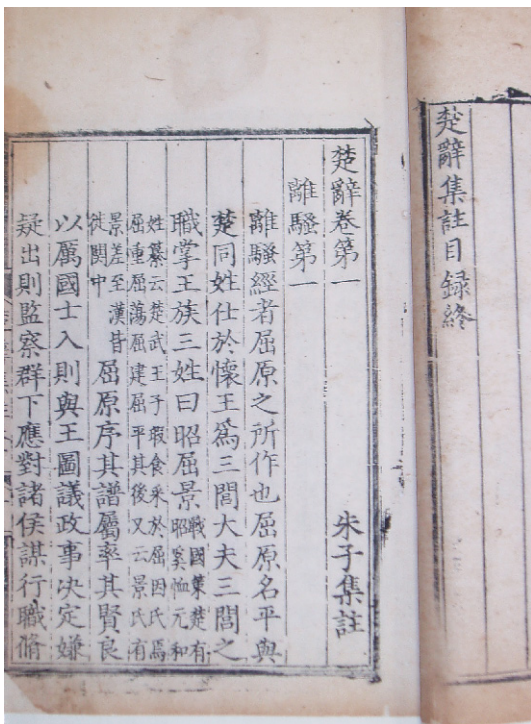 楚辭集註目録終
楚辭卷第一
朱子集註
離騷第一
離騷經者屈原之所作也屈原名平與
楚同姓仕於懷王爲三閭大夫三閭之
職掌王族三姓曰昭屈景戰國策楚有
昭奚恤元和
姓纂云楚武王子瑕食采於屈因氏焉
屈重屈蕩屈建屈平其後又云景氏有
景差至漢皆
徙関中
屈原序其譜屬率其賢良
以厲國士入則與王圖議政事决定嫌
疑出則監察群下應對諸侯謀行職脩